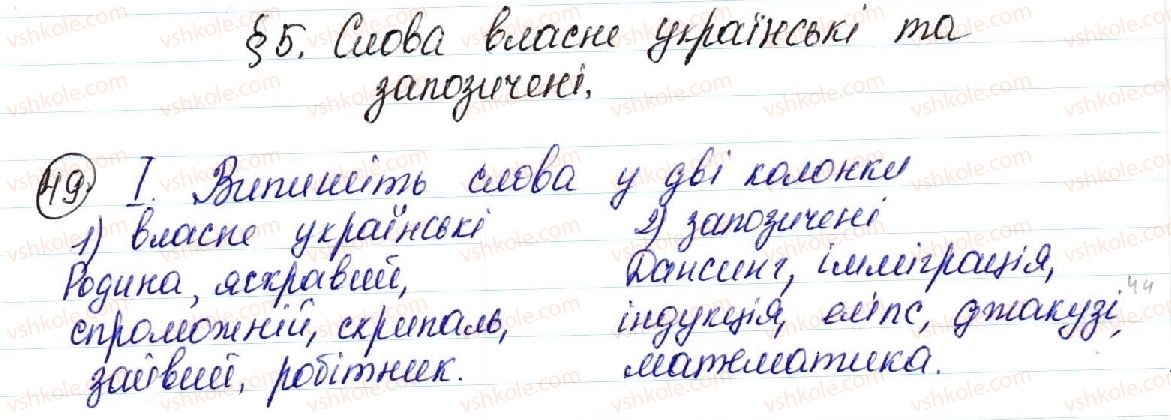 §5. Слова власне українські та
запозичені.
49. I. Випишіть слова у дві колонки
1) власне українські 2) запозичені
Родина, яскравий, Дансинг, імміграція,
спроможній, скрипаль, індукція, еліпс, джакузі,
зайвий, робітник. математика.
44